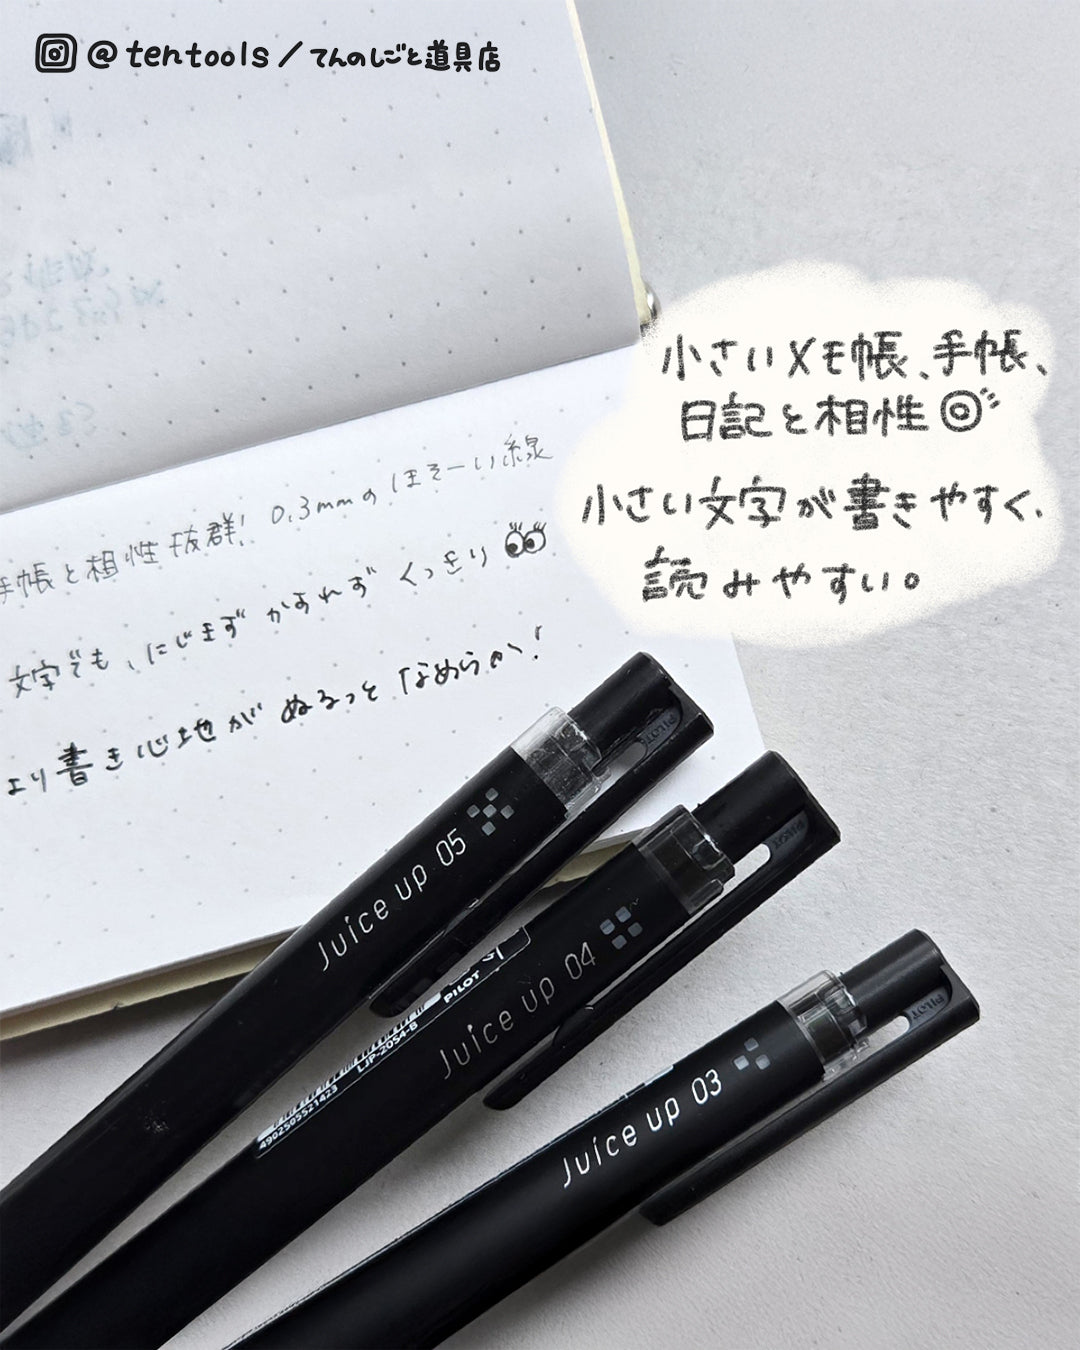 @tentools/てんのしごと道具店
小さいメモ帳、手帳、
日記と相性◎
小さい文字が書きやすく、
読みやすい。
手帳と相性抜群! 0.3mmのほそーい線
文字でも、にじまず かすれず くっきり
より書き心地が ぬるっと なめらか!
PILOT
Juice up 05
PILOT
Juice up 04
PILOT
LJP-20S4-B
4902505521423
PILOT
Juice up 03